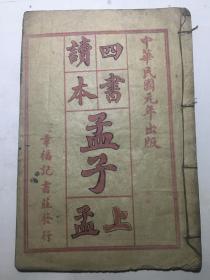 中華民國元年出版
四書
讀本
孟子
上
孟
章福記書莊發行